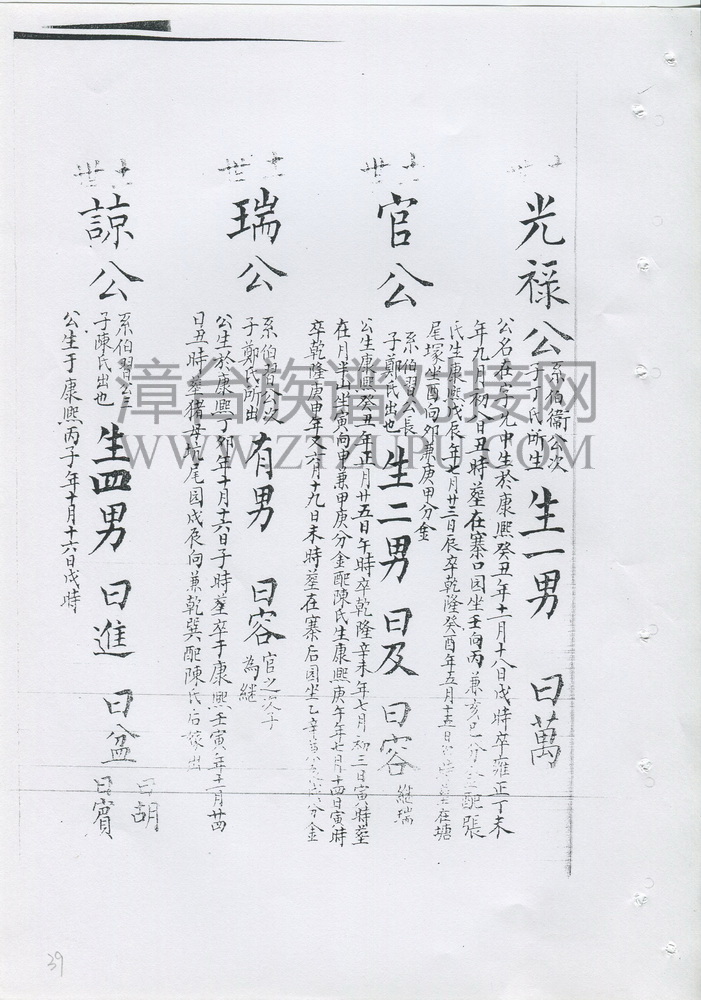 光禄公
系伯衞公次
子丁氏所生
生一男 曰萬
公名在字光中生於康熙癸丑年十二月十八日戌時卒雍正丁未
年九月初八日丑時塟在寨口园坐壬向丙兼亥巳分金配張
氏生康熙戊辰年七月廿三日辰卒乾隆癸酉年五月十五日
在塘
尾塚坐酉向卯兼庚甲分金
世
官公
系伯習公長
子鄭氏出也
生二男 曰及 曰容
继瑞
公生康熙癸丑年正月廿五日午時卒乾隆辛未年七月初三日寅時塟
在月半山坐寅向申兼甲庚分金配陳氏生康熙庚午年七月十四日寅時
卒乾隆庚申年又六月十九日未時塟在寨后园坐乙辛
分金
世
瑞公
系伯習公次
子鄭氏所出
有男 曰容
官之次子
為継
公生於康熙丁卯年十月十六日子時塟卒于康熙壬寅年十二月廿四
日丑時塟猪母坑尾园戌辰向兼乾巽配陳氏后嫁出
世
諒公
系伯習公三
子陳氏出也
生四男 曰進 曰盆
曰胡
曰賓
公生于康熙丙子年十月十六日戌時
漳台族谱对接网
WWW.ZTZUPU.COM
39